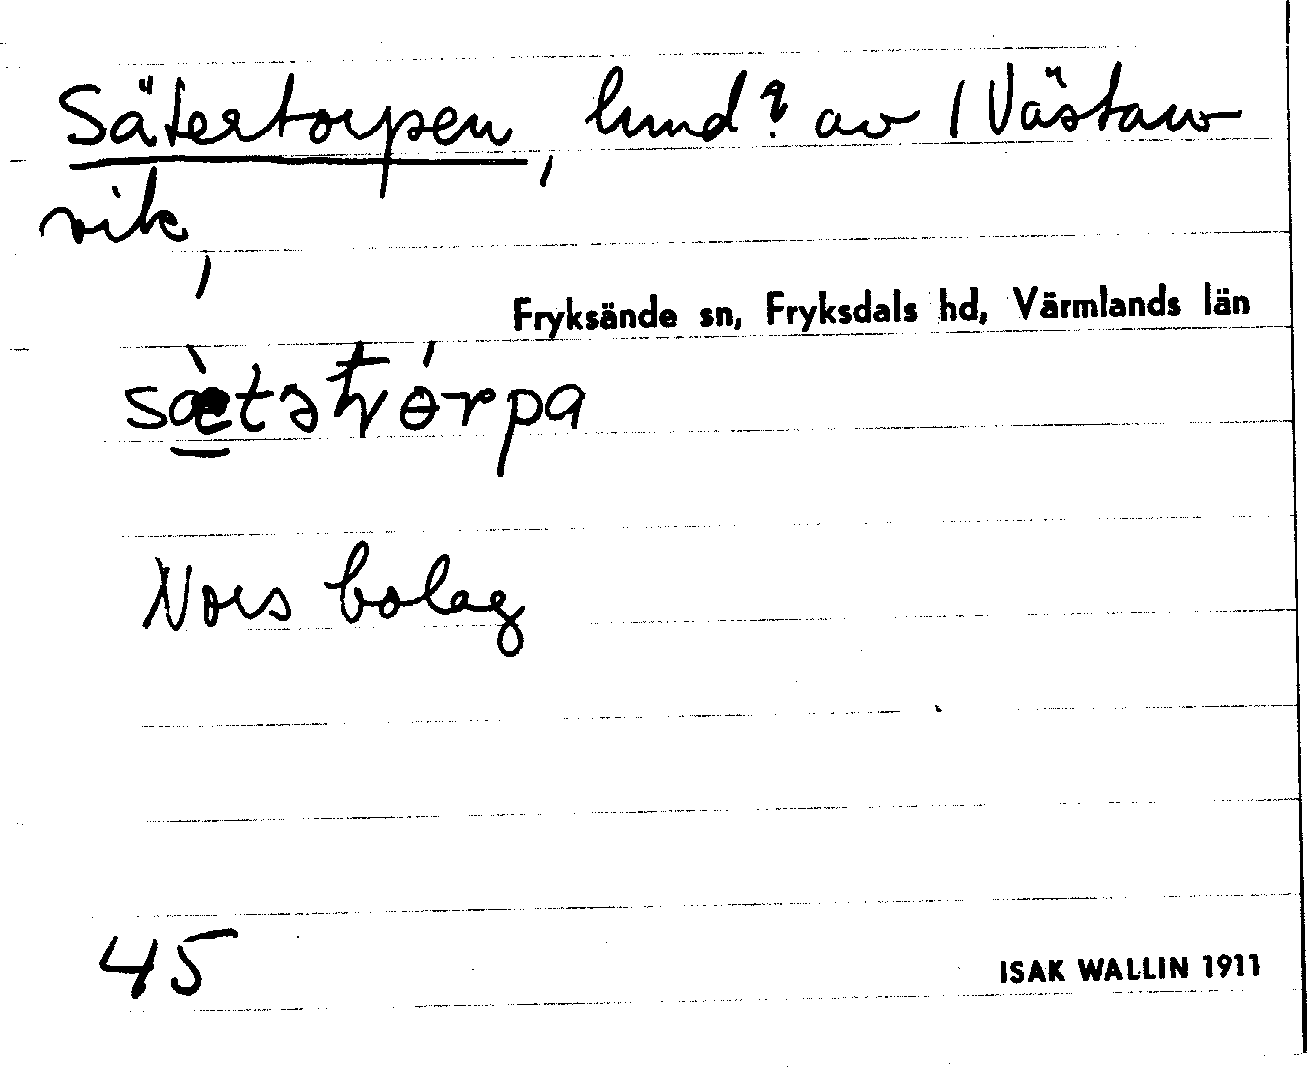 Sätertorpen, lund? av 1 Västan
vik,
Fryksände sn, Fryksdals hd, Värmlands län
Nors bolag
45
ISAK WALLIN 1911